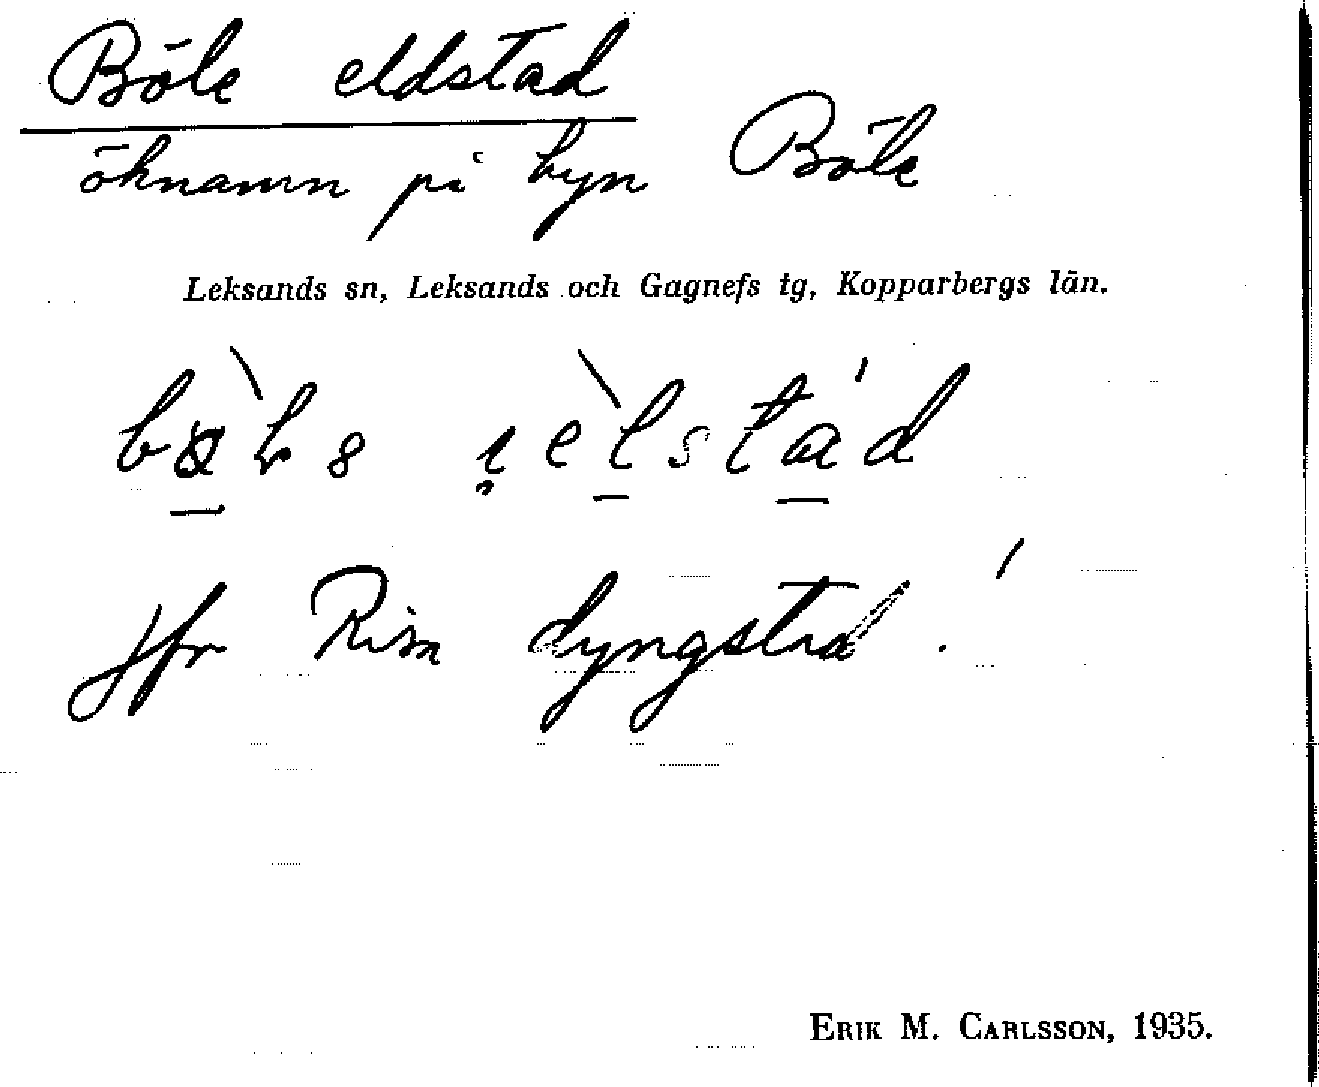 Böle eldstad
öknamn på byn Böle
Leksands sn, Leksands och Gagnefs tg, Kopparbergs län.
Jfr Rism dyngstad.
ERIK M. CARLSSON, 1935.